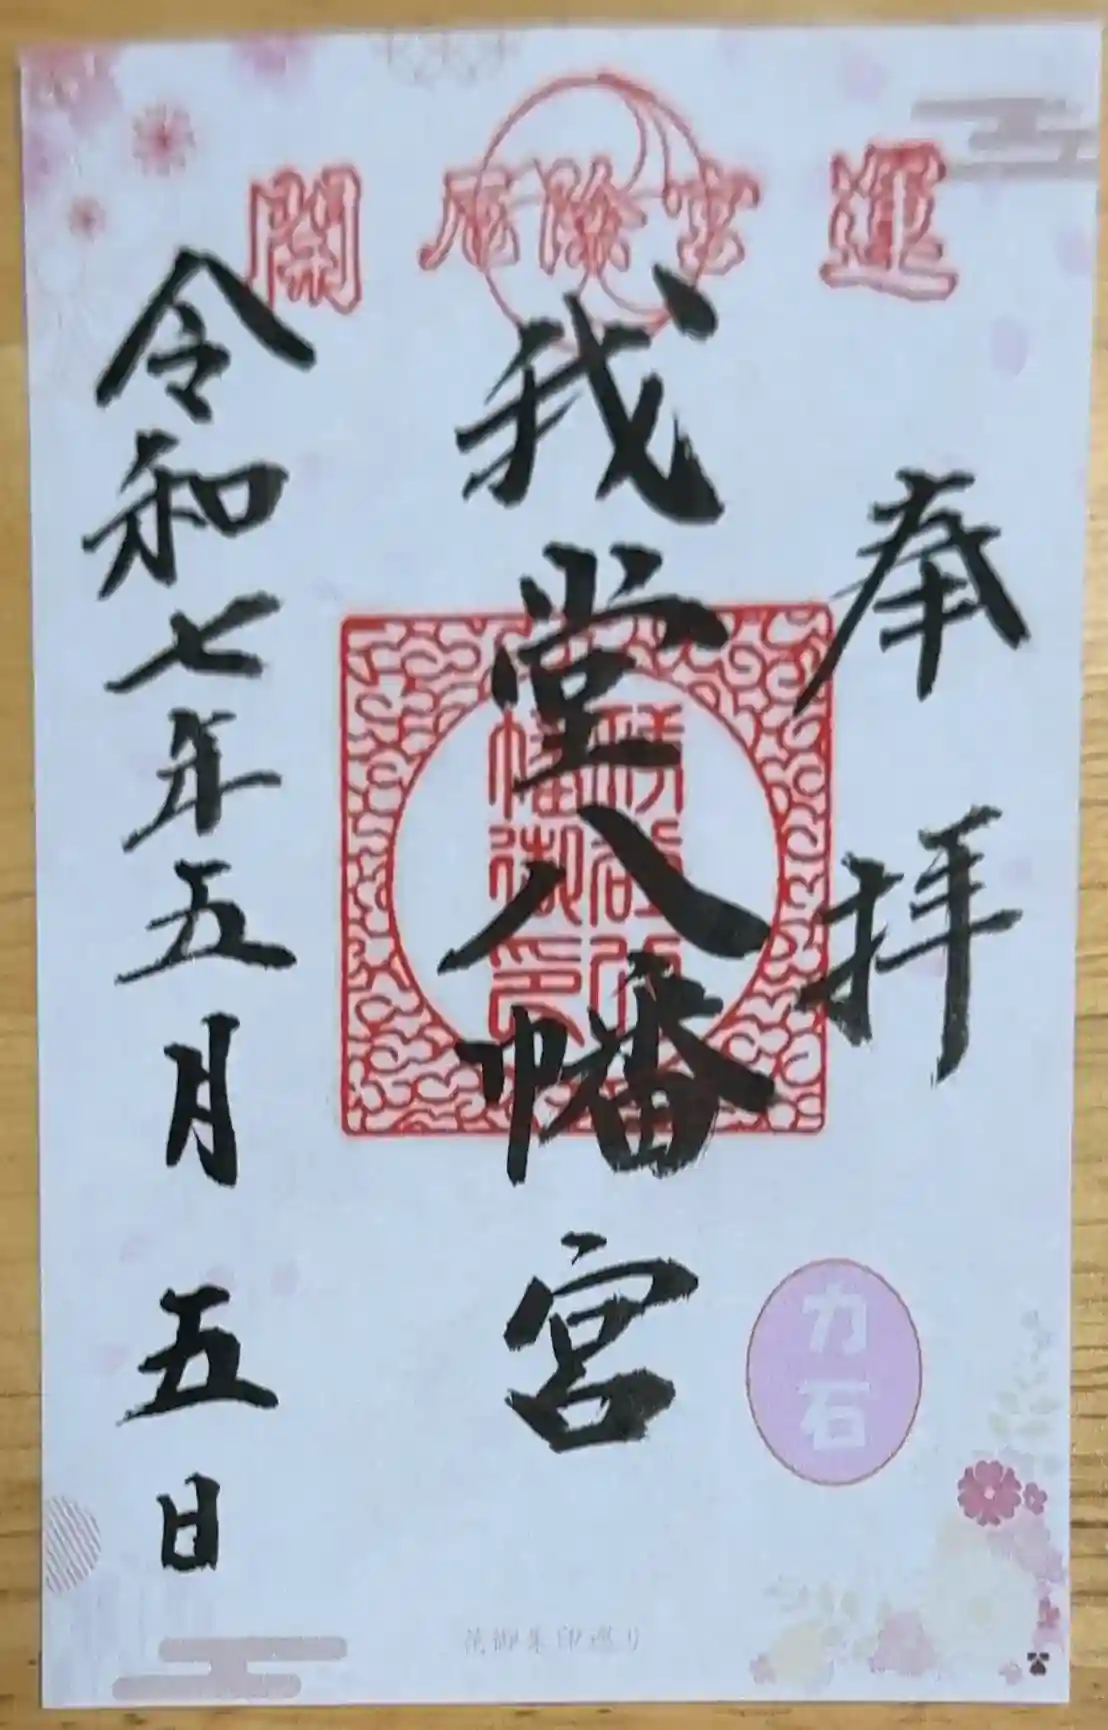 開 厄除宮 運
奉拝
我堂八幡宮
令和七年五月五日
力石
花御朱印巡り